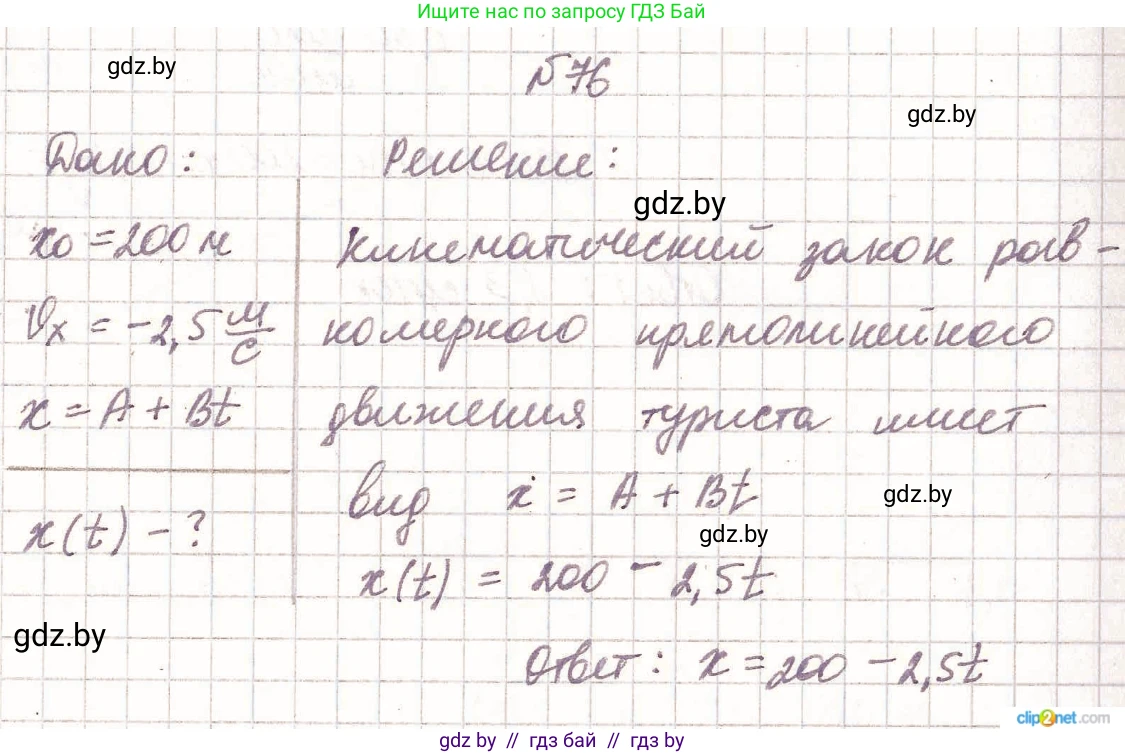 Ищите нас по запросу ГДЗ Бай
gdz.by
№76
gdz.by
Дано:
Решение:
gdz.by
x₀ = 200 м
Кинематический закон рав-
Vₓ = -2,5 м/с
номерного прямолинейного
x = A + Bt
движения туриста имеет
вид x = A + Bt
gdz.by
x(t) - ?
gdz.by
x(t) = 200 - 2,5t
gdz.by
Ответ: x = 200 - 2,5t
clip2net.com
gdz by // гдз бай // гдз by